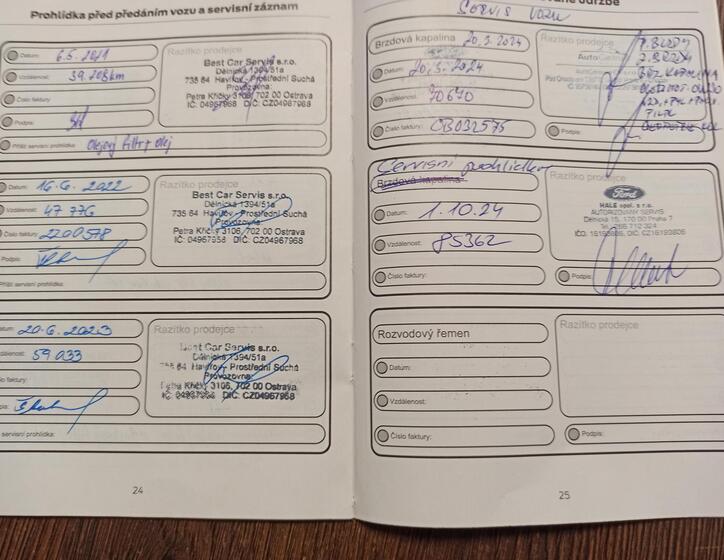 Prohlídka před předáním vozu a servisní záznam
Datum: 6.5.2021
Vzdálenost: 39.208km
Číslo faktury:
Podpis:
Příští servisní prohlídka: Olejový filtr+olej
Razítko prodejce
Best Car Servis s.r.o.
Dělnická 1394/51a
735 64 Havířov - Prostřední Suchá
Provozovna:
Petra Křičky 3106, 702 00 Ostrava
IČ: 04967968 DIČ: CZ04967968
Datum: 16.6.2022
Vzdálenost: 47 776
Číslo faktury: 2200578
Podpis:
Příští servisní prohlídka:
Razítko prodejce
Best Car Servis s.r.o.
Dělnická 1394/51a
735 64 Havířov - Prostřední Suchá
Provozovna:
Petra Křičky 3106, 702 00 Ostrava
IČ: 04967968 DIČ: CZ04967968
Datum: 20.6.2023
Vzdálenost: 59 033
faktury:
servisní prohlídka:
Razítko prodejce
Best Car Servis s.r.o.
Dělnická 1394/51a
735 64 Havířov - Prostřední Suchá
Provozovna:
Petra Křičky 3106, 702 00 Ostrava
IČ: 04967968 DIČ: CZ04967968
24
údržbě
SERVIS VOZU
Brzdová kapalina 20.3.2024
Datum: 20.3.2024
Vzdálenost: 70670
Číslo faktury: CB032575
Razítko prodejce
Auto
Podpis:
Servisní prohlídka
Brzdová kapalina
Datum: 1.10.24
Vzdálenost: 85362
Číslo faktury:
Razítko prodejce
Ford
HALE spol. s r.o.
AUTORIZOVANÝ SERVIS
Dělnická 15, 170 00 Praha 7
Podpis:
Rozvodový řemen
Datum:
Vzdálenost:
Číslo faktury:
Razítko prodejce
Podpis:
25